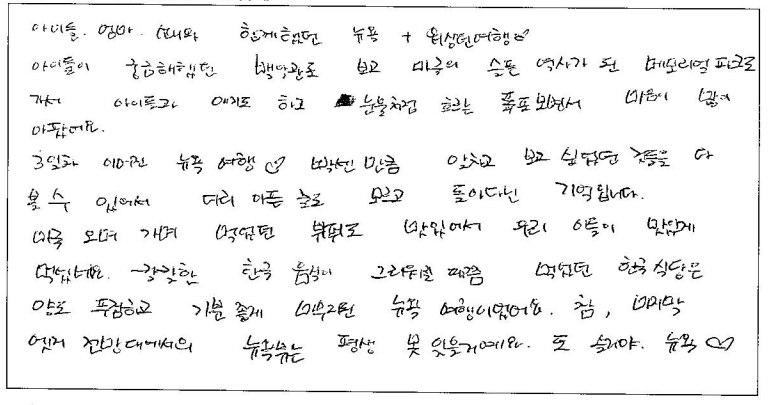 아이들. 엄마. 함께했던 뉴욕 + 워싱턴여행♡
아이들이 궁금해했던 백악관도 보고 미국의 슬픈 역사가 된 메모리얼 파크로
가서 아이들과 애기도 하고 눈물처럼 흐르는 폭포 보면서 마음이 많이
아팠어요.
3일과 이어진 뉴욕 여행♡ 빡센 만큼 알차고 보고 싶었던 것들을 다
볼 수 있어서 다리 아픈 줄도 모르고 돌아다닌 기억입니다.
미국 오며 가며 먹었던 뷔페도 맛있어서 우리 아들이 맛있게
먹었네요. 한국 음식이 그리워질 때쯤 먹었던 한국 식당은
양도 푸짐하고 기분 좋게 마무리된 뉴욕 여행이었어요. 참, 마지막
엣지 전망대에서의 뉴욕뷰는 평생 못 잊을거예요. 또 올거야. 뉴욕♡